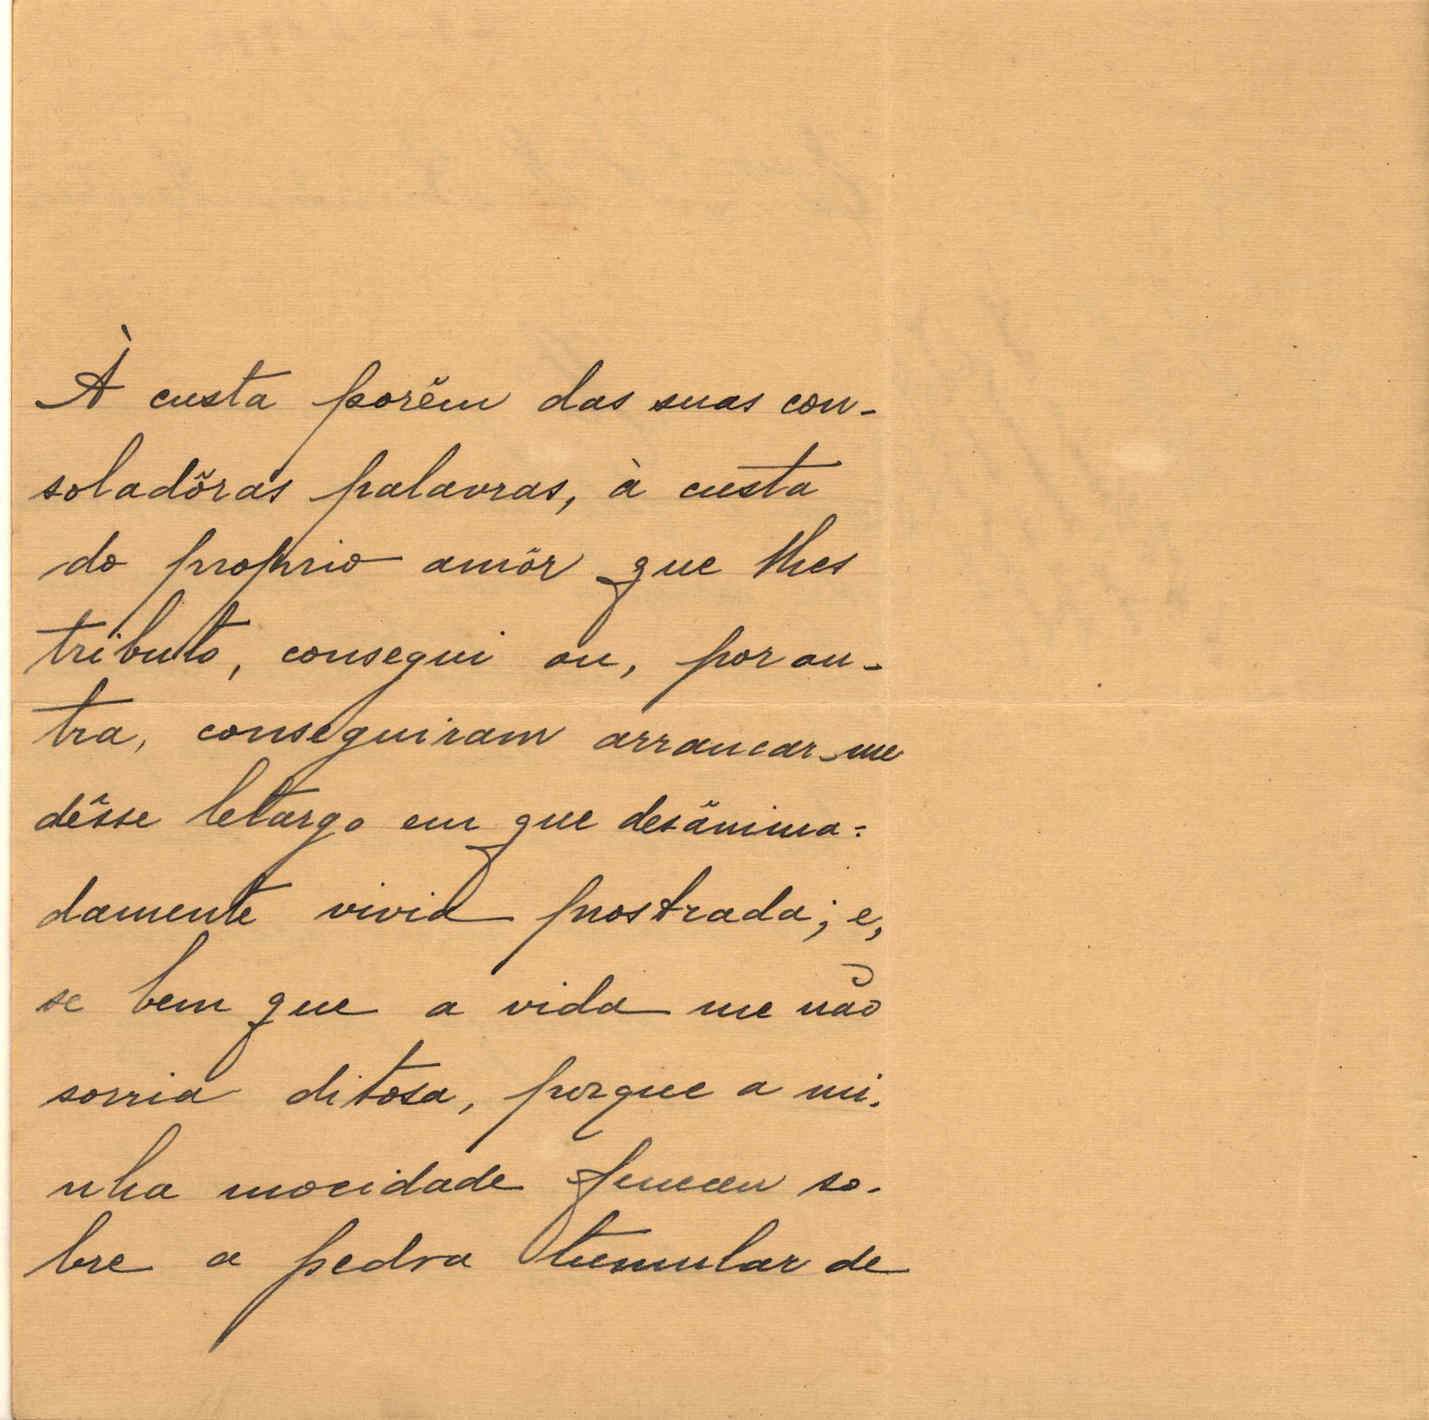 À custa porêm das suas con-
soladôras palavras, à custa
do proprio amôr que lhes
tributo, consegui ou, por ou-
tra, conseguiram arrancar-me
dêsse letargo em que desânima-
damente vivia prostrada; e,
se bem que a vida me não
sorria ditosa, porque a mi-
nha mocidade feneceu so-
bre a pedra tumular de